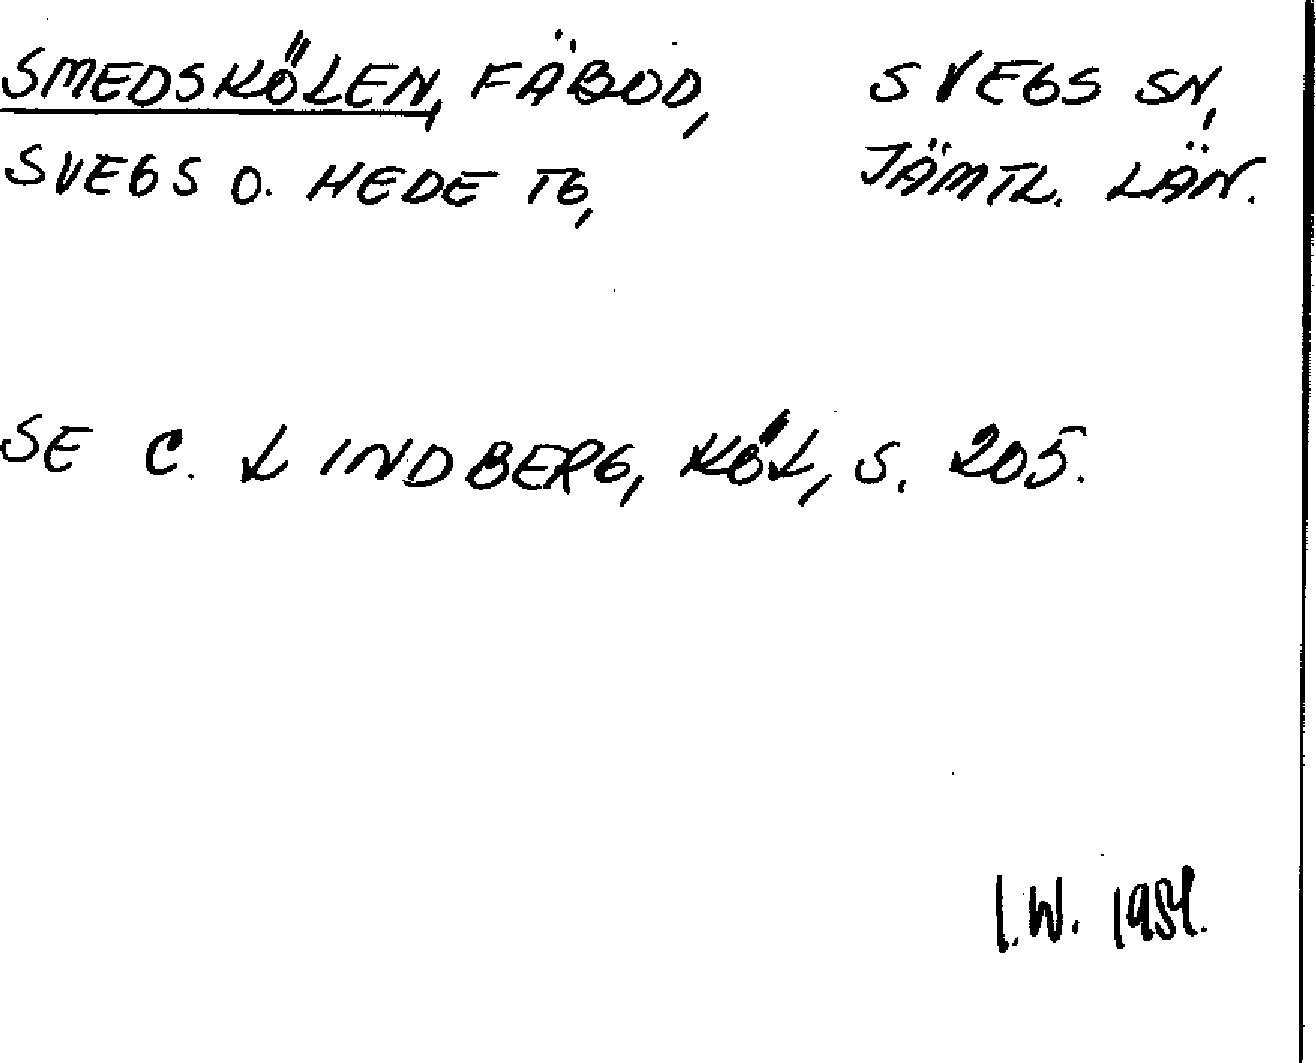 SMEDSKÖLEN, FÄBOD, SVEGS SN,
SVEGS O. HEDE TG, JÄMTL. LÄN.
SE C. LINDBERG, KÖL, S. 205.
I.W. 1984.